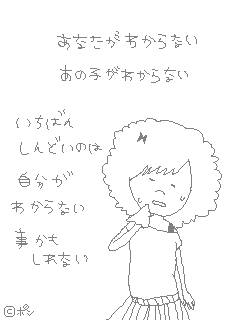 あなたがわからない
あの子がわからない
いちばん
しんどいのは
自分が
わからない
事かも
しれない
©ポシ